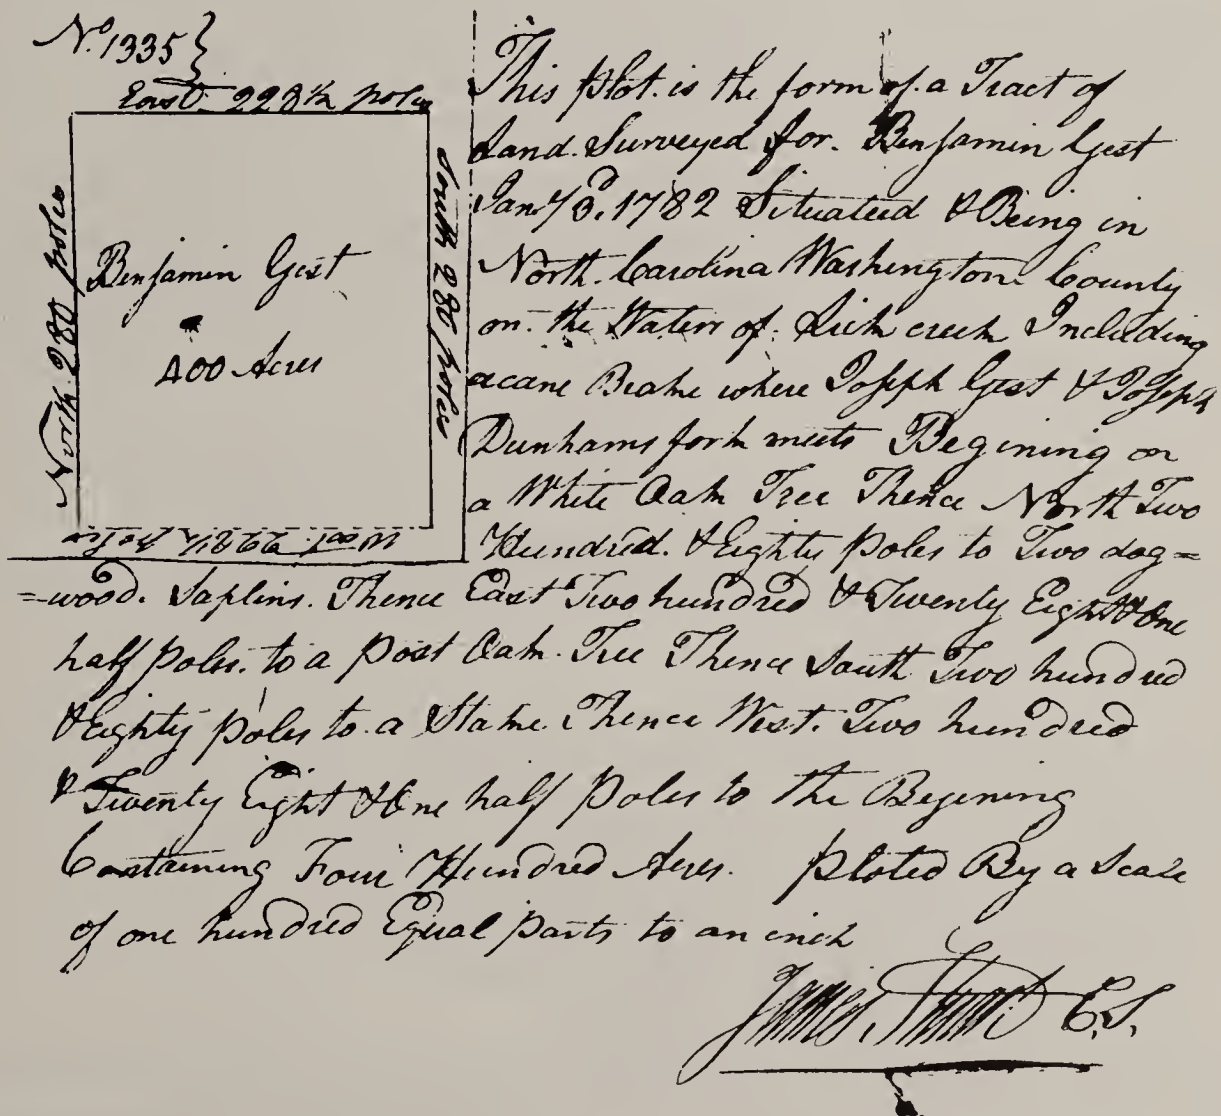 No. 1335}
East 228½ poles
South 280 poles
North 280 poles
Benjamin Gest
400 Acres
West 228½ poles
This plot is the form of a Tract of
Land Surveyed for Benjamin Gest
Jany 3d, 1782 Situated & Being in
North Carolina Washington County
on the Waters of Lick creek Including
a cane Brake where Joseph Gest & Joseph
Dunhams fork meets Begining on
a White Oak Tree Thence North Two
Hundred & Eighty poles to Two dog=
=wood Saplins. Thence East Two hundred & Twenty Eight & One
half poles to a post Oak Tree Thence South Two hundred
& Eighty poles to a Stake Thence West Two hundred
& Twenty Eight & One half poles to the Begining
Containing Four Hundred Acres. ploted By a Scale
of one hundred Equal parts to an inch
James Stuart C.S.